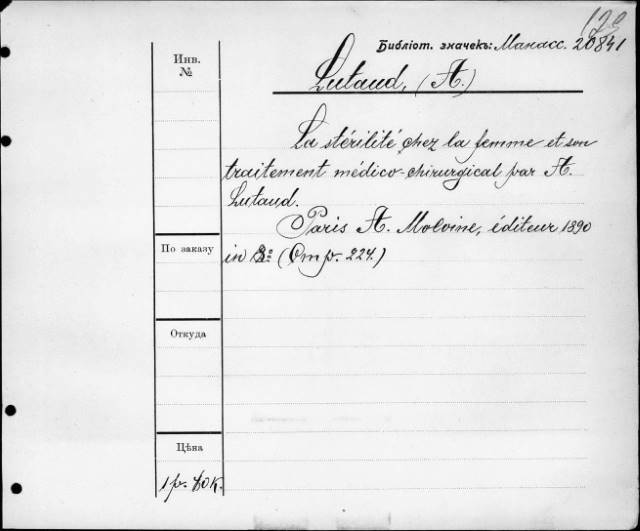 Библіот. значекъ: Манасс. 20841
Инв.
№
Lutaud, (A.)
La stérilité chez la femme et son
traitement médico-chirurgical par A.
Lutaud.
Paris A. Moloine, éditeur 1890
По заказу
in 8º (Стр. 224.)
Откуда
Цѣна
1 р. 80 к.